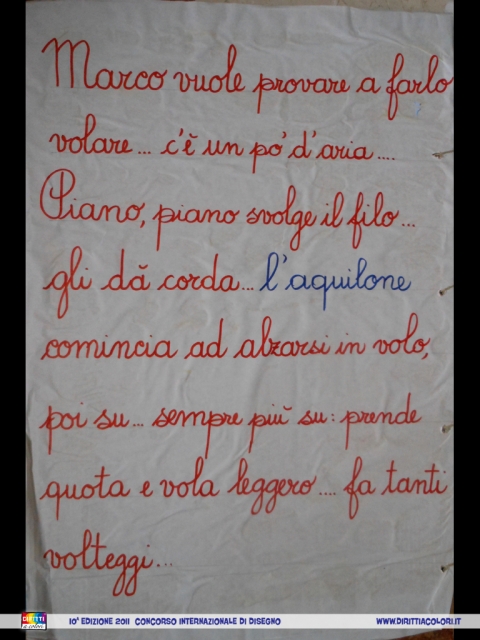 Marco vuole provare a farlo
volare... c'è un po' d'aria....
Piano, piano svolge il filo...
gli dă corda... l'aquilone
comincia ad alzarsi in volo,
poi su... sempre piŭ su: prende
quota e vola leggero.... fa tanti
volteggi...
DIRITTI a colori
10° EDIZIONE 2011 CONCORSO INTERNAZIONALE DI DISEGNO
WWW.DIRITTIACOLORI.IT